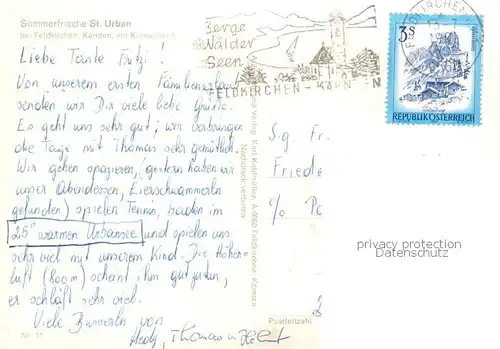 Sommerfrische St. Urban
bei Feldkirchen, Kärnten, mit Kurnwegen
Liebe Tante Fritzi!
Von unserem ersten Familienurlaub
senden wir Dir viele liebe Grüße.
Es geht uns sehr gut; wir verbringen
die Tage mit Thomas sehr gemütlich.
Wir gehen spazieren, (gestern haben wir
unser Abendessen, Eierschwammerln
gefunden) spielen Tennis, baden im
25° warmen Urbansee und spielen uns
sehr viel mit unserem Kind. Die Höhen-
luft (800 m) scheint ihm gut zu tun,
er schläft sehr viel.
Viele Busserln von
Thomas u.
Nr. 11
Berge
Wälder
Seen
FELDKIRCHEN - KÄRNTEN
3S
REPUBLIK ÖSTERREICH
Nachdruck verboten
S.g. Fr
Friede
c/o Po
Postleitzahl
privacy protection
Datenschutz